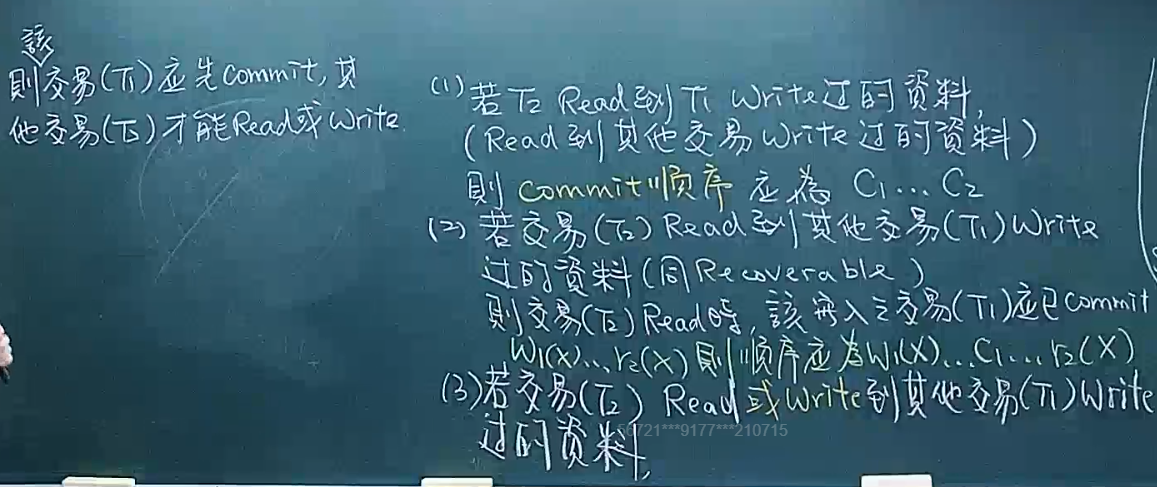 該
則交易(T1)应先Commit,其
他交易(T2)才能Read或Write
(1)若T2 Read到T1 Write过的資料,
(Read到其他交易Write过的資料)
則 commit順序 应為 C1...C2
(2)若交易(T2)Read到其他交易(T1)Write
过的資料(同Recoverable)
則交易(T2)Read時,該寫入之交易(T1)应已commit
W1(X)...r2(X)則順序应為W1(X)...C1...r2(X)
(3)若交易(T2) Read或Write到其他交易(T1)Write
过的資料,
56721***9177***210715